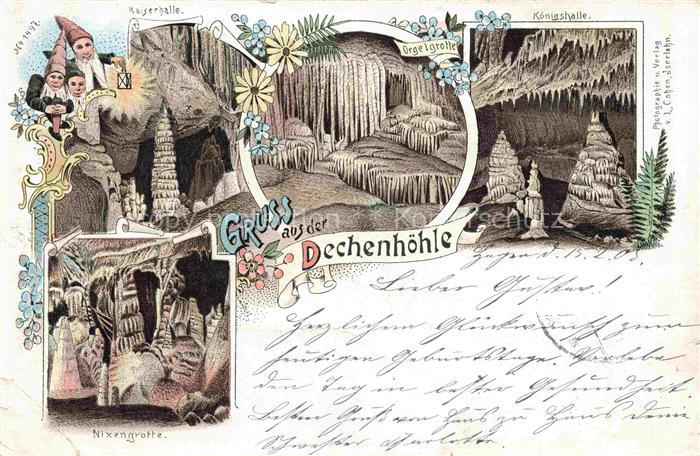 No 1497.
Kaiserhalle.
Orgelgrotte
Königshalle.
Photographie u. Verlag
v. L. Cohen, Iserlohn.
GRUSS
aus der
Dechenhöhle
Nixengrotte.
Hagen d. 15.2.03.
Lieber Gustav!
Herzlichen Glückwunsch zum
heutigen Geburtstage. Verlebe
den Tag in bester Gesundheit.
Besten Gruß von Haus zu Haus Deine
Schwester Charlotte.